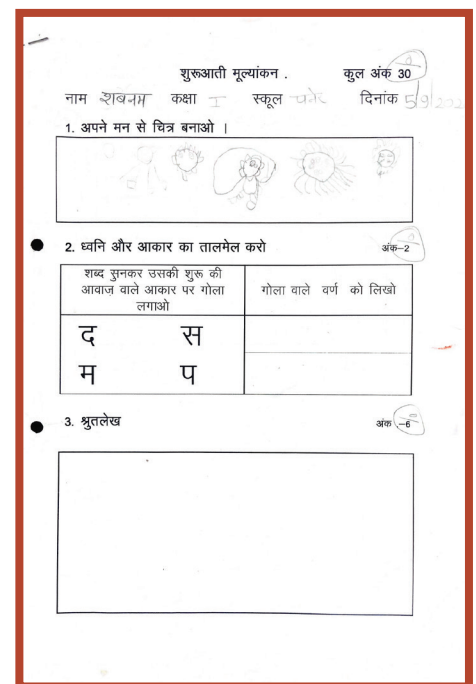 शुरूआती मूल्यांकन . कुल अंक 30
नाम शबनम कक्षा I स्कूल दिनांक 5/9/202
1. अपने मन से चित्र बनाओ ।
2. ध्वनि और आकार का तालमेल करो अंक–2
शब्द सुनकर उसकी शुरू की
आवाज़ वाले आकार पर गोला
लगाओ
गोला वाले वर्ण को लिखो
द स
म प
3. श्रुतलेख अंक –6